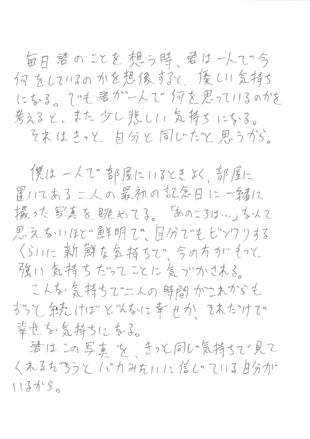 毎日君のことを想う時、君は一人で今
何をしているのかを想像すると、優しい気持ち
になる。でも君が一人で何を思っているのかを
考えると、また少し悲しい気持ちになる。
それはきっと、自分と同じだと思うから。
僕は一人で部屋にいるときよく、部屋に
置いてある二人の最初の記念日に一緒に
撮った写真を眺めてる。「あのころは…」なんて
思えないほど鮮明で、自分でもビックリする
くらいに新鮮な気持ちで、今の方がもっと
強い気持ちだってことに気づかされる。
こんな気持ちで二人の時間がこれからも
ずっと続けばどんなに幸せか、それだけで
幸せな気持ちになる。
君はこの写真を、きっと同じ気持ちで見て
くれるだろうとバカみたいに信じている自分が
いるから。